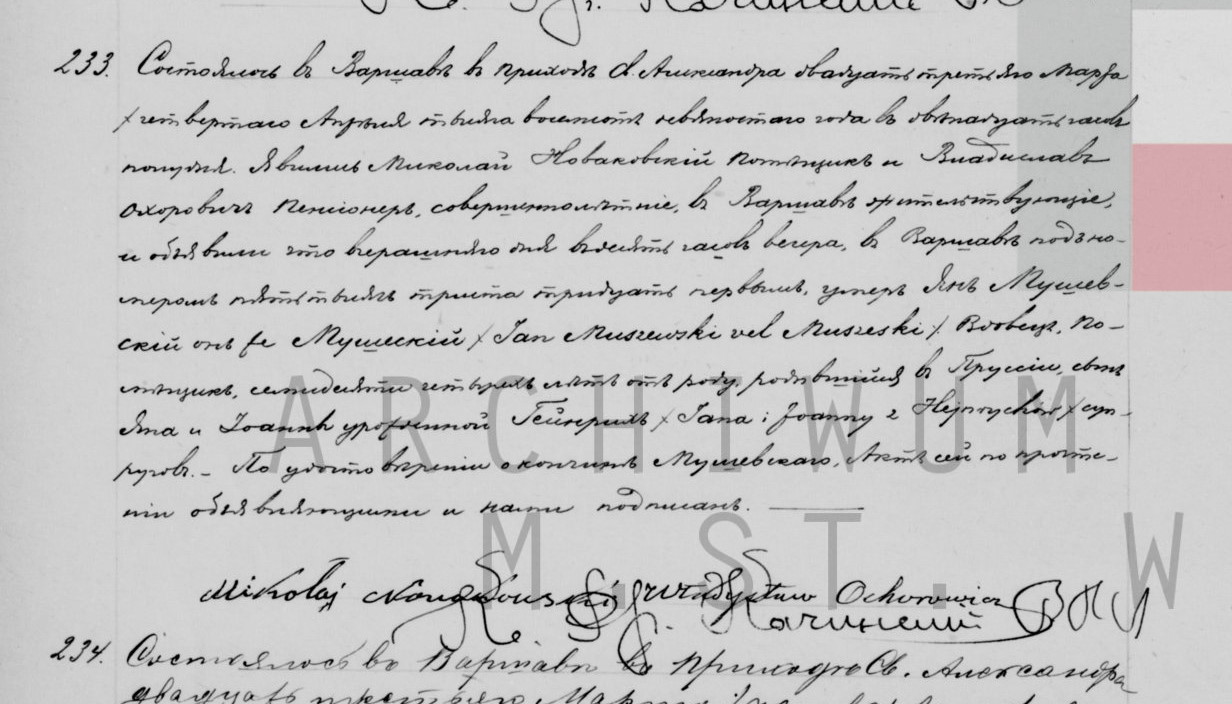 233. Состоялось въ Варшавѣ въ приходѣ Св. Александра двадцать третьяго Марта
/четвертаго Апрѣля тысяча восемьсотъ девяностаго года въ двѣнадцать часовъ
полудня. Явились Миколай Новаковскій помѣщикъ и Владиславъ
Охоровичъ пенсіонеръ, совершеннолѣтніе, въ Варшавѣ жительствующіе,
и объявили что вчерашняго дня въ девять часовъ вечера, въ Варшавѣ подъ но-
меромъ пять тысячъ триста тридцать первымъ, умеръ Янъ Мушев-
скій онъ же Мушескій / Jan Muszewski vel Muszeski / Вдовецъ, по-
мѣщикъ, семидесяти четырехъ лѣтъ отъ роду, родившійся въ Пруссіи, сынъ
Яна и Іоанны урожденной Гейнрихъ / Jana i Joanny z Hejnrychów / суп-
руговъ. – По удостовѣреніи о кончинѣ Мушевскаго, Актъ сей по прочте-
ніи объявляющими и нами подписанъ.
Mikołaj Nowakowski Władysław Ochorowicz
234. Состоялось въ Варшавѣ въ приходѣ Св. Александра
двадцать третьяго Марта
ARCHIWUM
M. ST. W